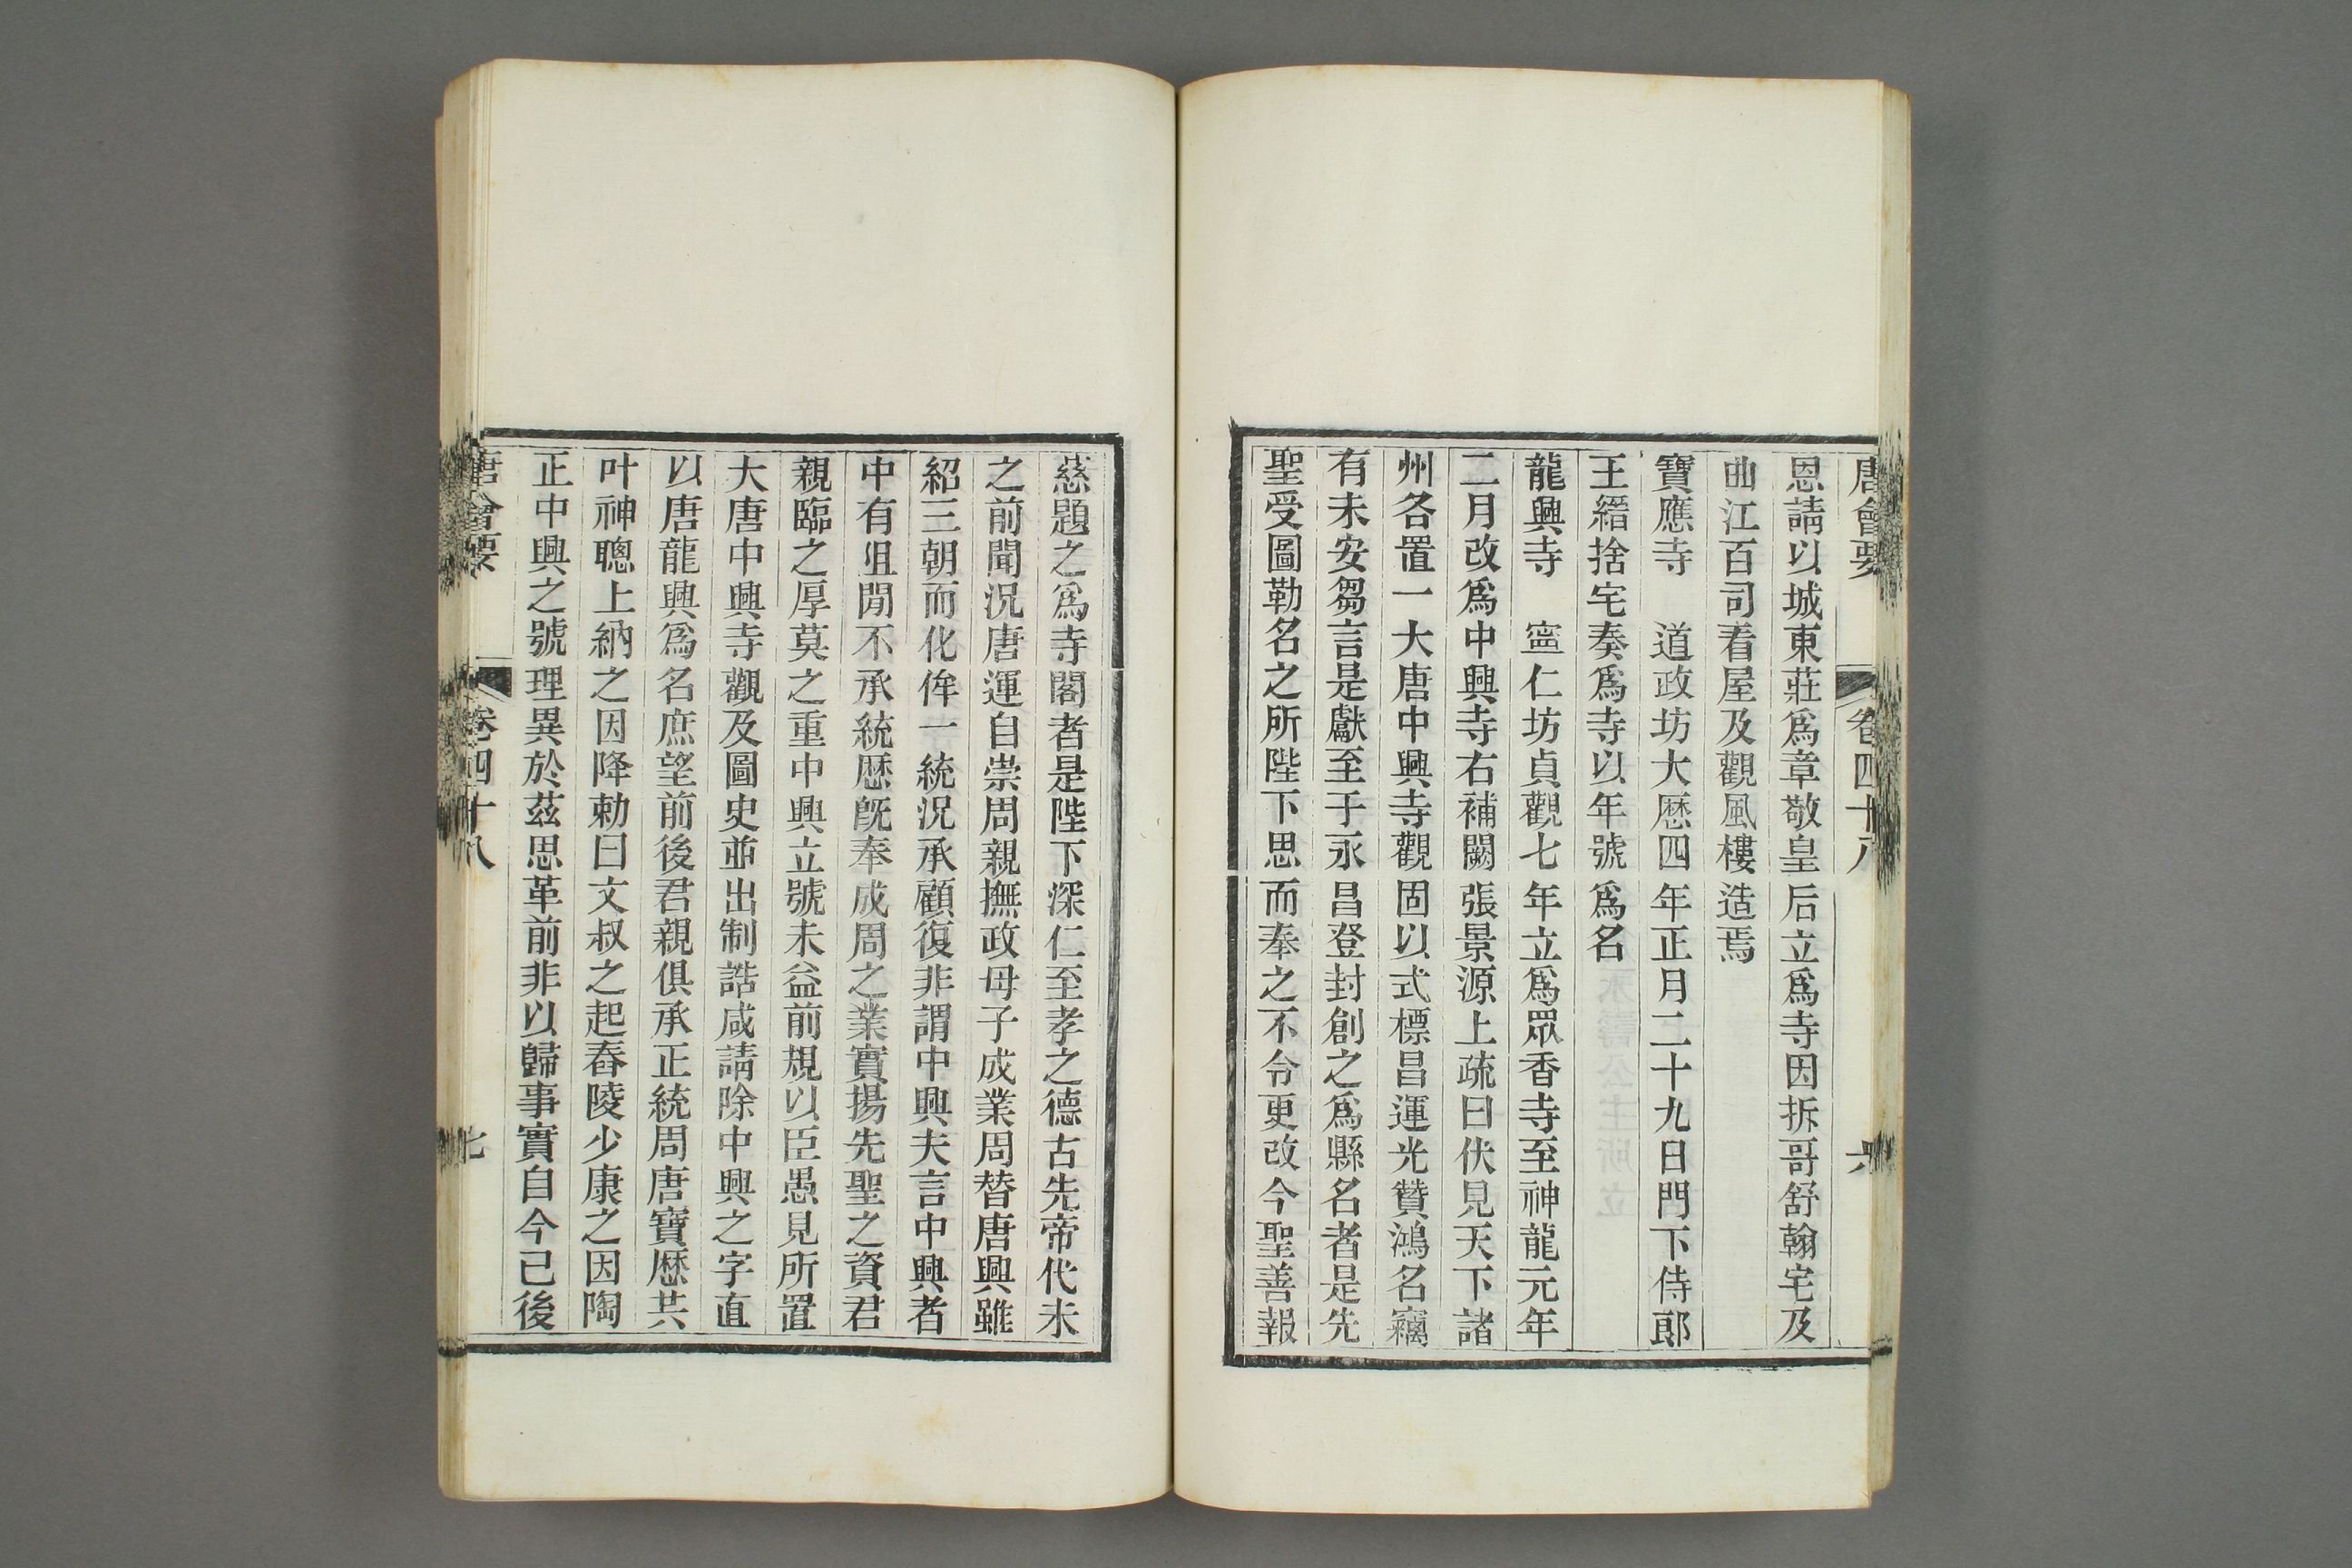 唐會要 卷四十八 六
恩請以城東莊爲章敬皇后立爲寺因拆哥舒翰宅及
曲江百司看屋及觀風樓造焉
寶應寺 道政坊大厯四年正月二十九日門下侍郎
王縉捨宅奏爲寺以年號爲名
龍興寺 寍仁坊貞觀七年立爲眾香寺至神龍元年
二月改爲中興寺右補闕張景源上疏曰伏見天下諸
州各置一大唐中興寺觀固以式標昌運光贊鴻名竊
有未安芻言是獻至于永昌登封創之爲縣名者是先
聖受圖勒名之所陛下思而奉之不令更改今聖善報
慈題之爲寺閣者是陛下深仁至孝之德古先帝代未
之前聞況唐運自崇周親撫政母子成業周替唐興雖
紹三朝而化侔一統況承顧復非謂中興夫言中興者
中有阻閒不承統厯既奉成周之業實揚先聖之資君
親臨之厚莫之重中興立號未益前規以臣愚見所置
大唐中興寺觀及圖史並出制誥咸請除中興之字直
以唐龍興爲名庶望前後君親俱承正統周唐寶厯共
叶神聰上納之因降勅曰文叔之起舂陵少康之因陶
正中興之號理異於茲思革前非以歸事實自今已後
唐會要 卷四十八 七